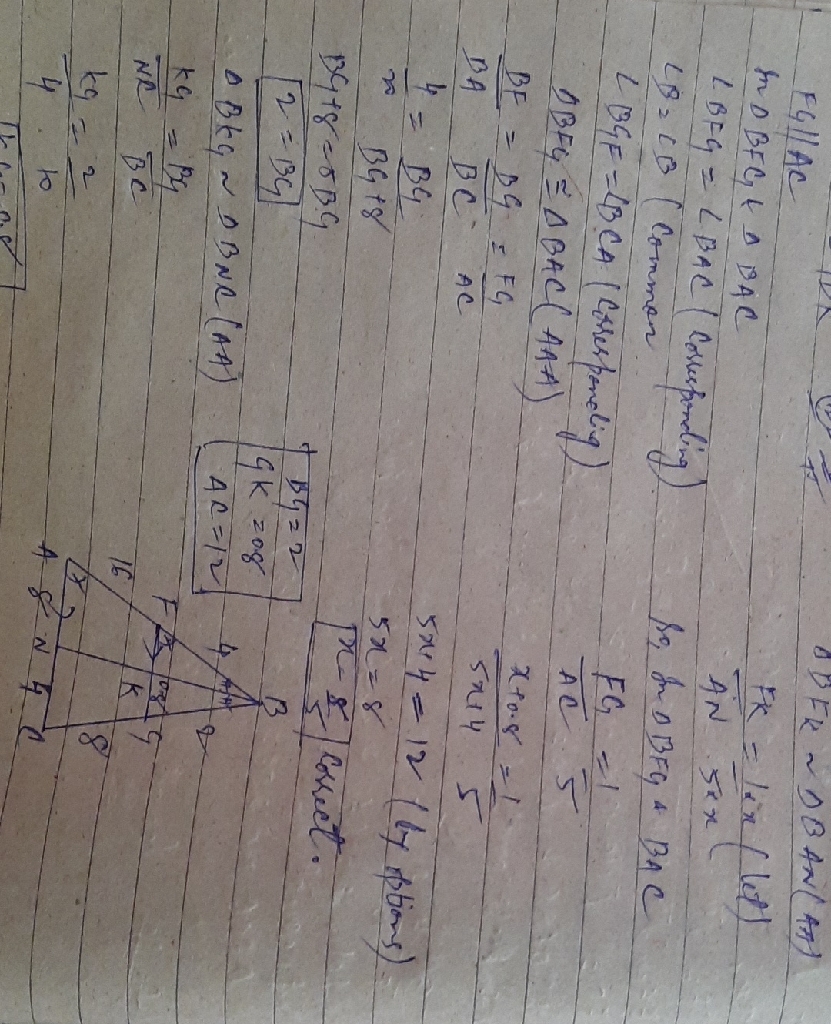 FG || AC
In Δ BFG & Δ BAC
∠BFG = ∠BAC (Corresponding)
∠B = ∠B (Common
∠BGF = ∠BCA (Corresponding)
Δ BFG ≅ Δ BAC (AAA)
BF/BA = BG/BC = FG/AC
BG+8 = 5BG
2 = BG
Δ BKG ~ Δ BNC (AA)
KG/NC = BG/BC
KG/4 = 2/10
BG = 2
GK = 0.8
AC = 12
Δ BFK ~ Δ BAN (AA)
FK/AN = 1×x/5×x (let)
In Δ BFG & BAC
FG/AC = 1/5
x+0.8/5x+4 = 1/5
5x+4 = 12 (by options)
5x = 8
x = 8/5 Correct.
B
4
2
F
K
0.8
G
16
8
A
8
N
4
C